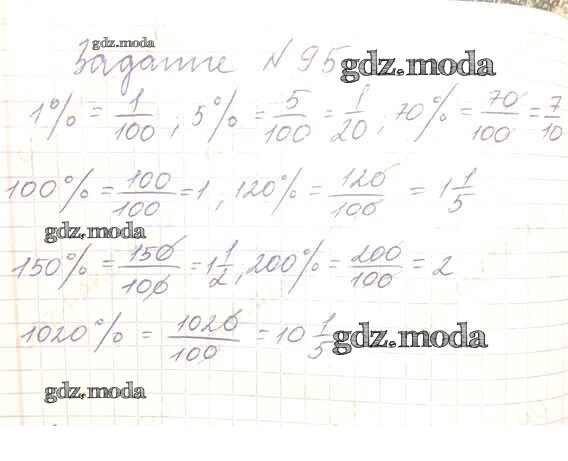 gdz.moda
Задание №95 gdz.moda
1% = 1/100 ; 5% = 5/100 = 1/20 ; 70% = 70/100 = 7/10
100% = 100/100 = 1 , 120% = 120/100 = 1 1/5
gdz.moda
150% = 150/100 = 1 1/2 , 200% = 200/100 = 2
1020% = 1020/100 = 10 1/5 gdz.moda
gdz.moda